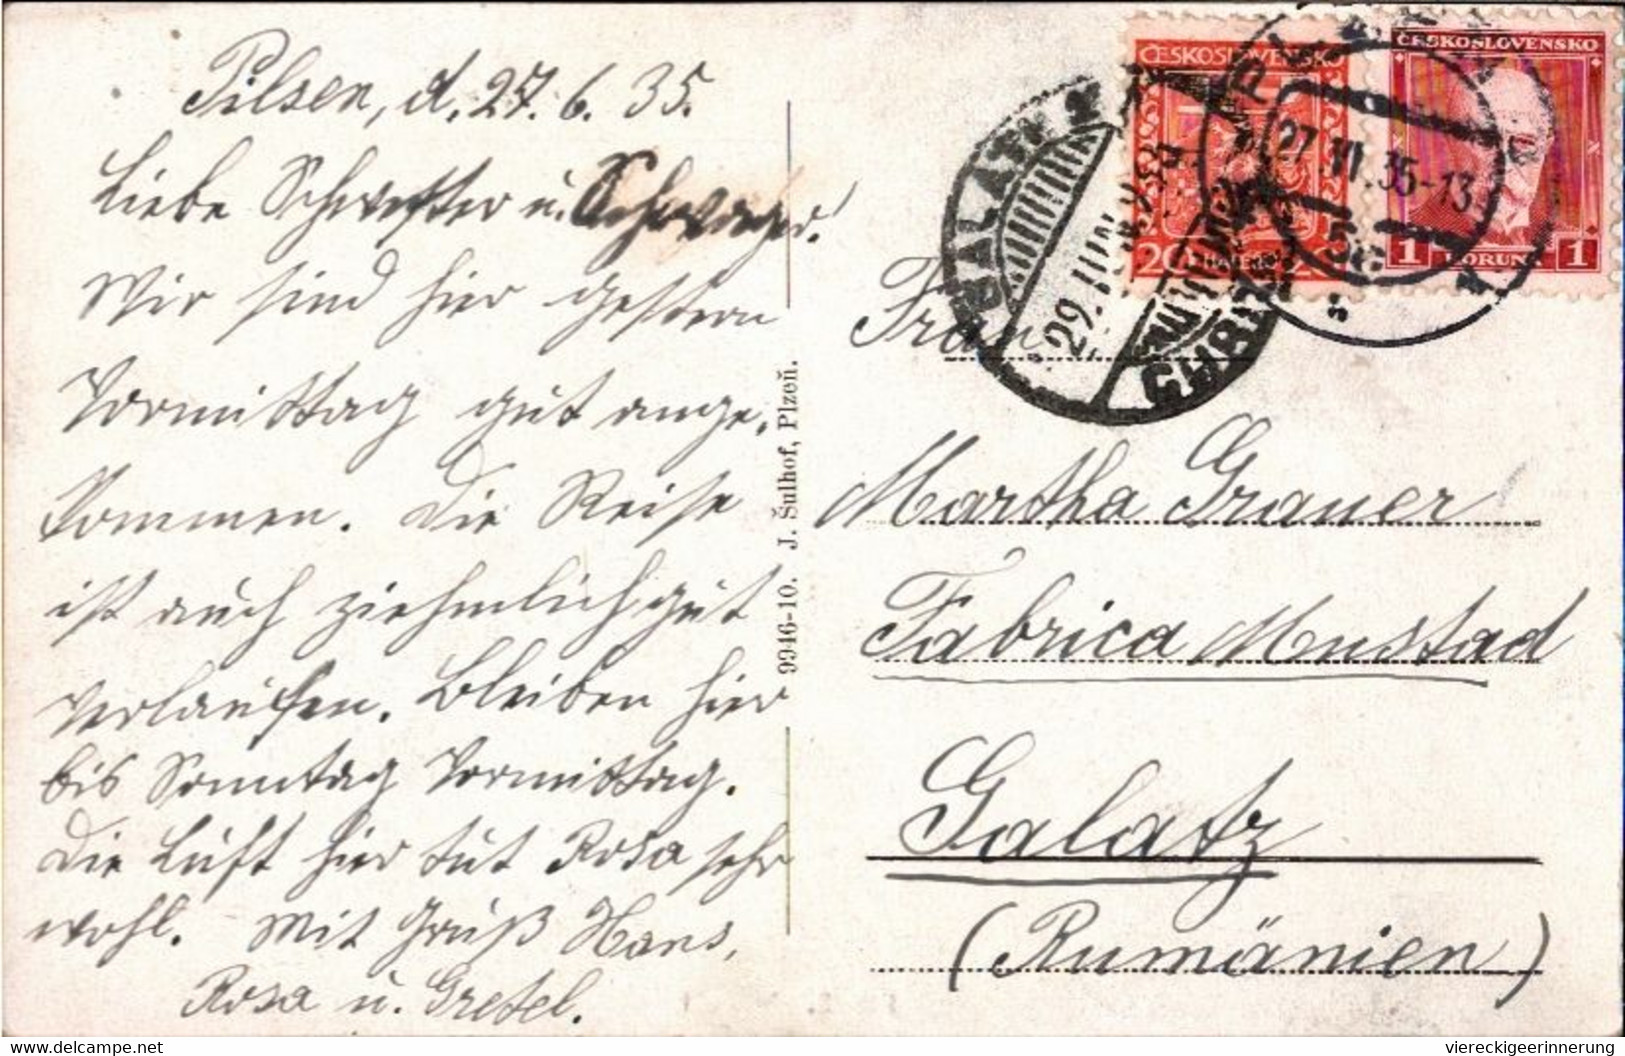 Pilsen, d. 27.6.35.
Liebe Schwester u. Schwager!
Wir sind hier gestern
Vormittag gut ange-
kommen. Die Reise
ist auch ziehmlich gut
verlaufen. Bleiben hier
bis Sonntag Vormittag.
Die Luft hier tut Rosa sehr
wohl. Mit Gruß Hans,
Rosa u. Gretel.
9946-10. J. Šulhof, Plzeň.
ČESKOSLOVENSKO
20
ČESKOSLOVENSKO
1 KORUNA 1
27.VI.35-13
GALATI
29. IUN. 935
Frau
Martha Grauer
Fabrica Mustad
Galatz
(Rumänien)
viereckigeerinnerung
www.delcampe.net